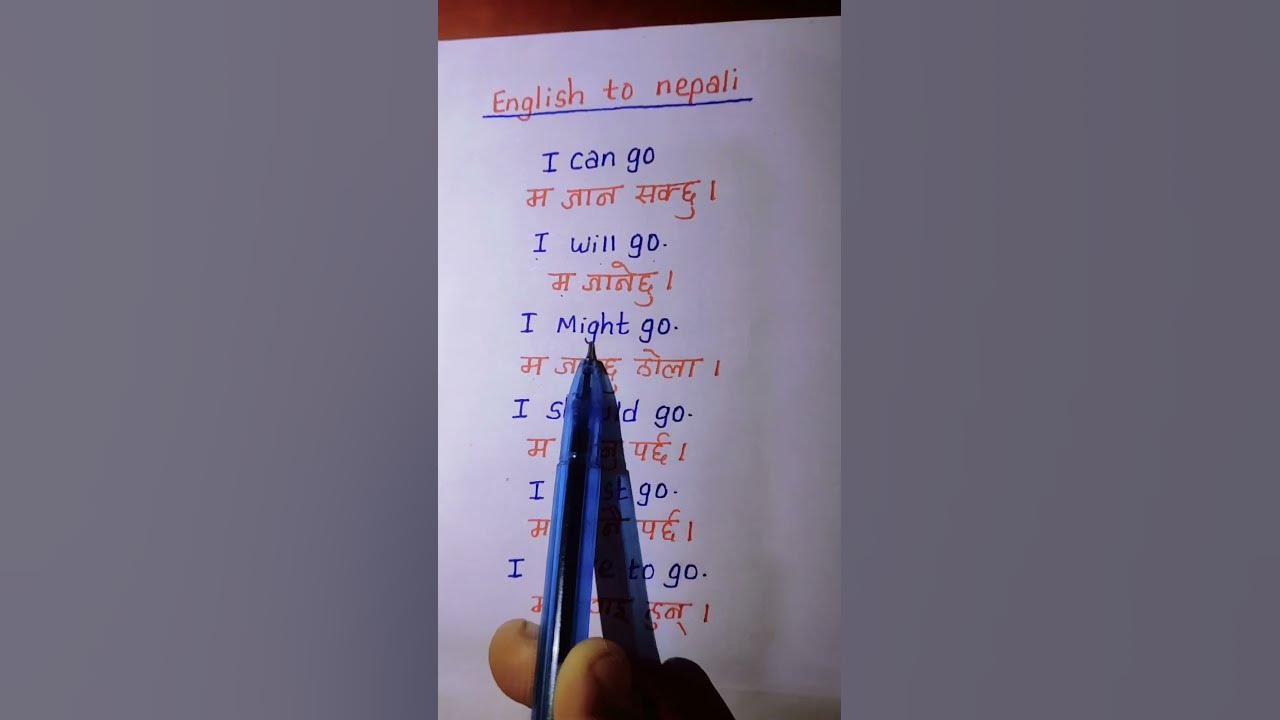 English to nepali
I can go
म जान सक्छु ।
I will go.
म जानेछु ।
I Might go.
म होला ।
I go.
म पर्छ ।
I go.
म पर्छ ।
I to go.
हुन् ।